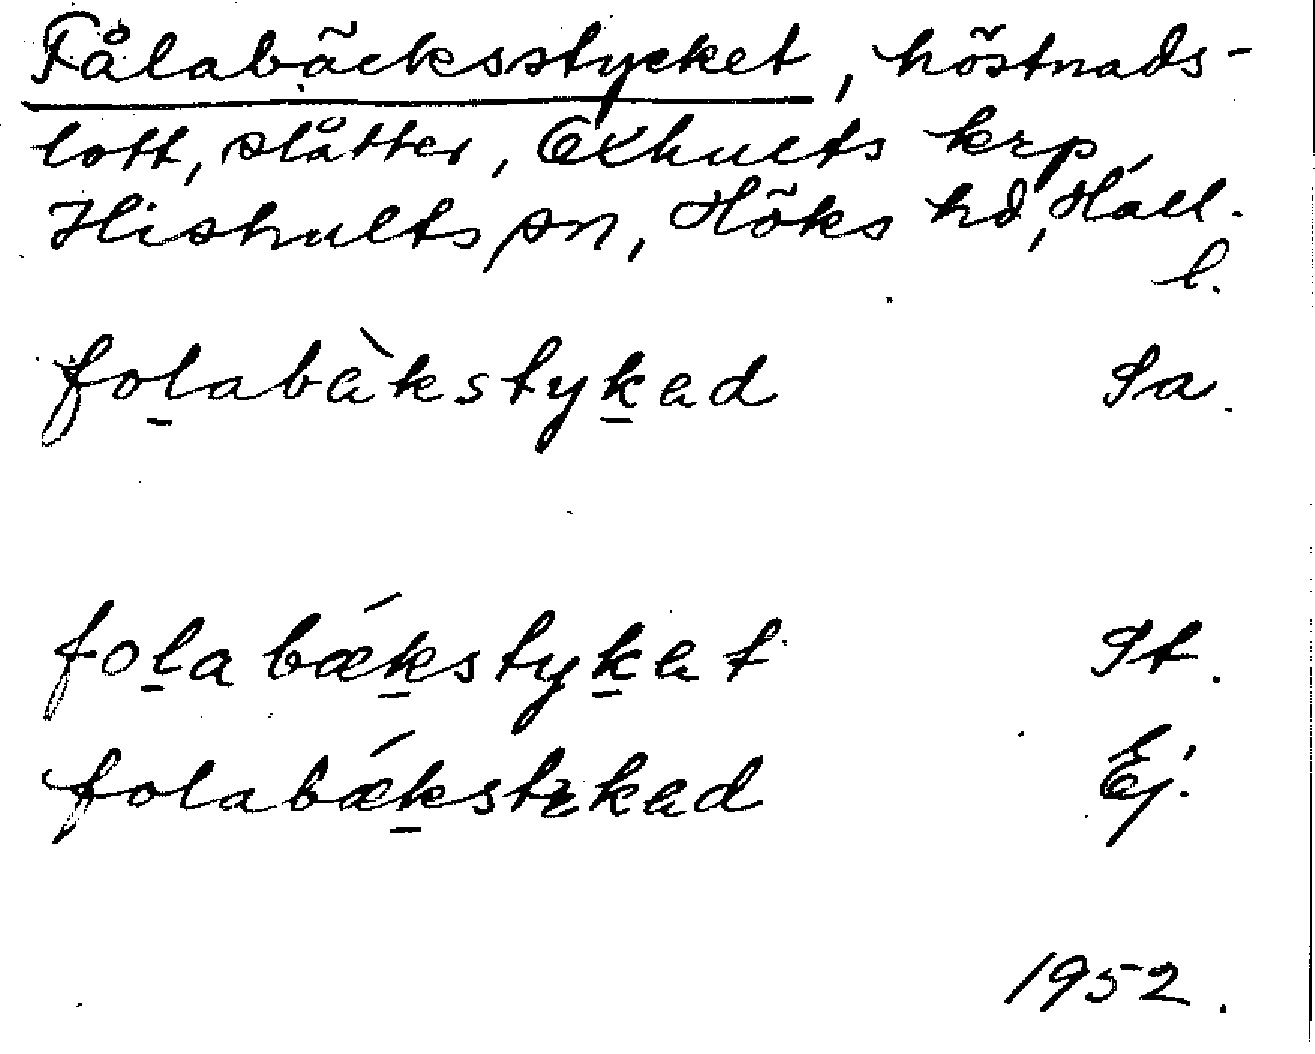 Fålabäcksstycket, höstnads-
lott, slåtter, Oxhults krp,
Hishults sn, Höks hd, Hall.
l.
fol̲abàkstyk̲ad Sa.
fol̲abǽk̲styk̲at St.
folabǽk̲stykad Ej.
1952.